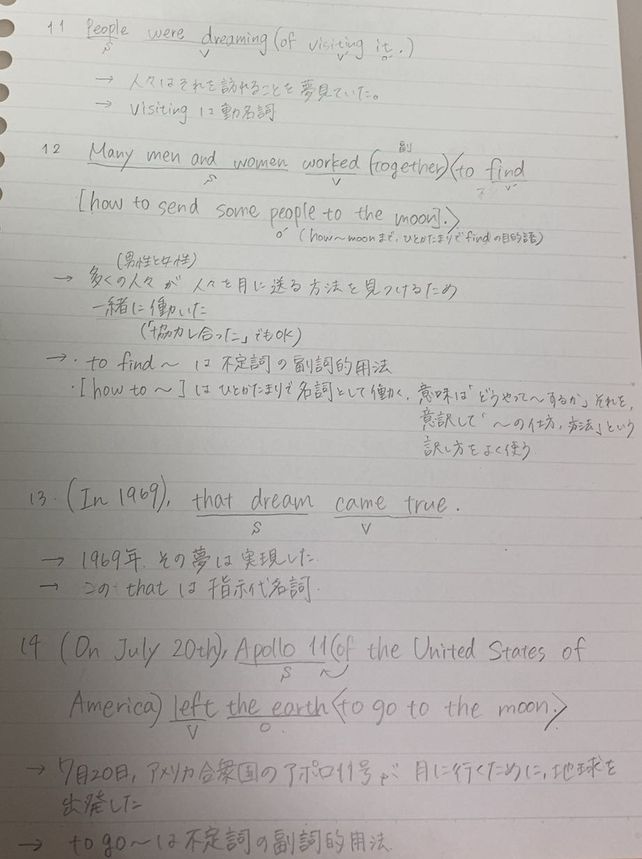 11 People were dreaming (of visiting it.)
S V V' O'
→ 人々はそれを訪れることを夢見ていた。
→ visiting は動名詞
副
12 Many men and women worked (together) <to find
S V V'
[how to send some people to the moon].>
O' (how〜moonまで、ひとかたまりでfindの目的語)
(男性と女性)
→ 多くの人々が 人々を月に送る方法を見つけるため
一緒に働いた
(「協力し合った」でもOK)
→ ・to find〜 は 不定詞の副詞的用法
・[how to〜] はひとかたまりで名詞として働く、意味は「どうやって〜するか」それを、
意訳して「〜の仕方、方法」という
訳し方をよく使う
13. (In 1969), that dream came true.
S V
→ 1969年、その夢は実現した
→ この that は 指示代名詞
14 (On July 20th), Apollo 11 (of the United States of
S
America) left the earth <to go to the moon.>
V O
→ 7月20日、アメリカ合衆国のアポロ11号が 月に行くために、地球を
出発した
→ to go〜は不定詞の副詞的用法